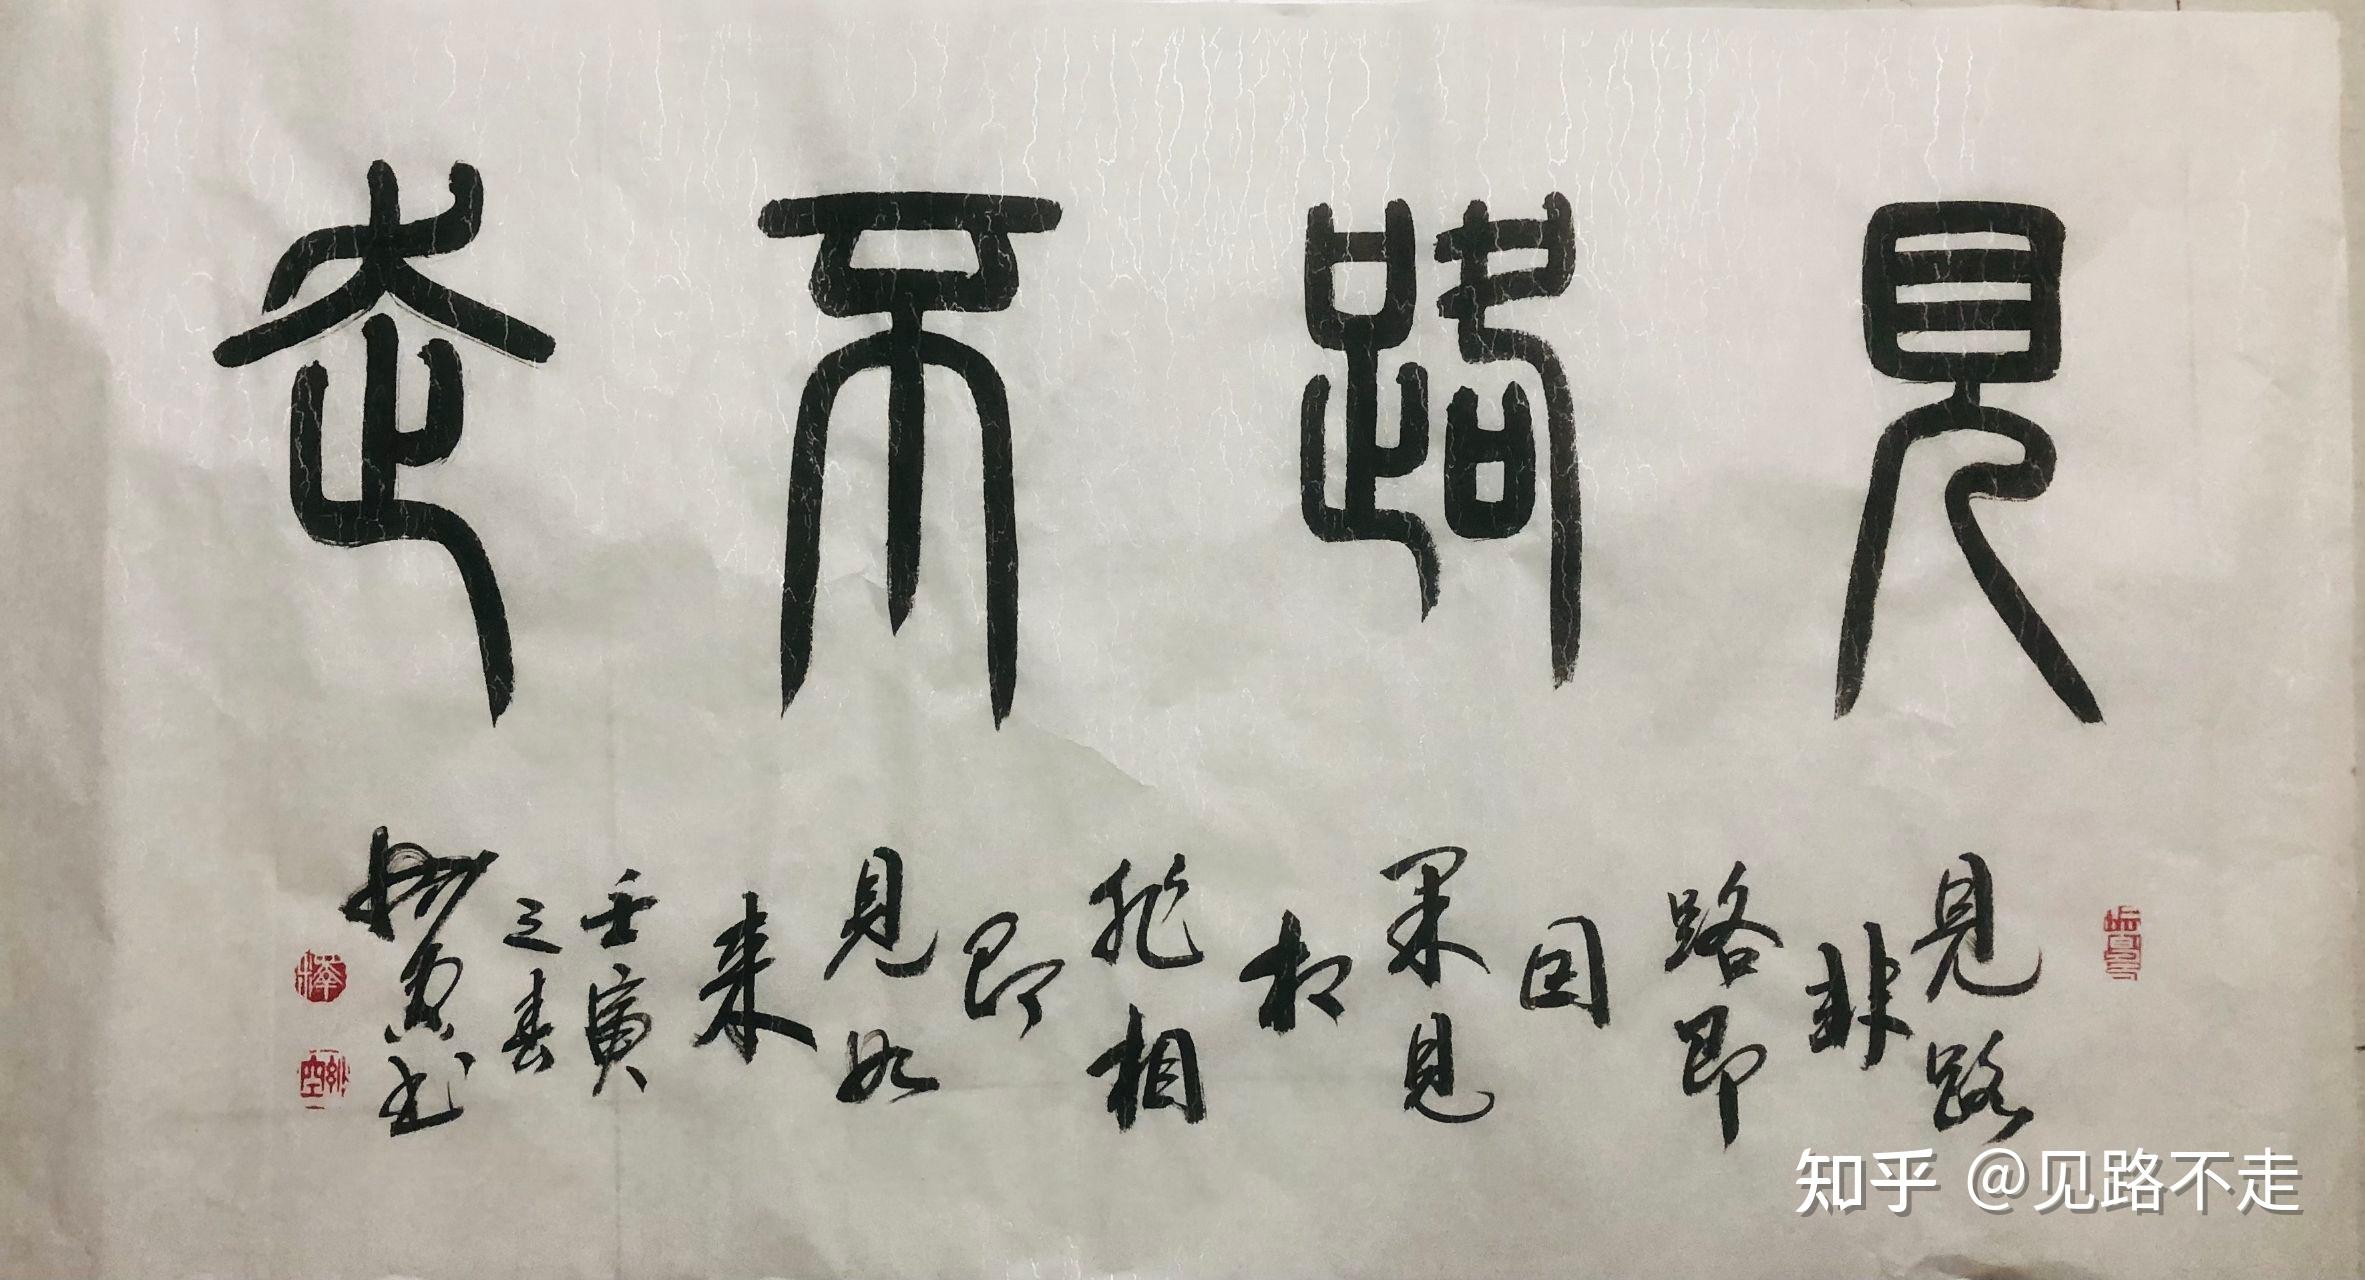 見路不走
見路
非
路即
因
果見
相
非相
即
見如
来
壬寅
之春
书
知乎 @见路不走